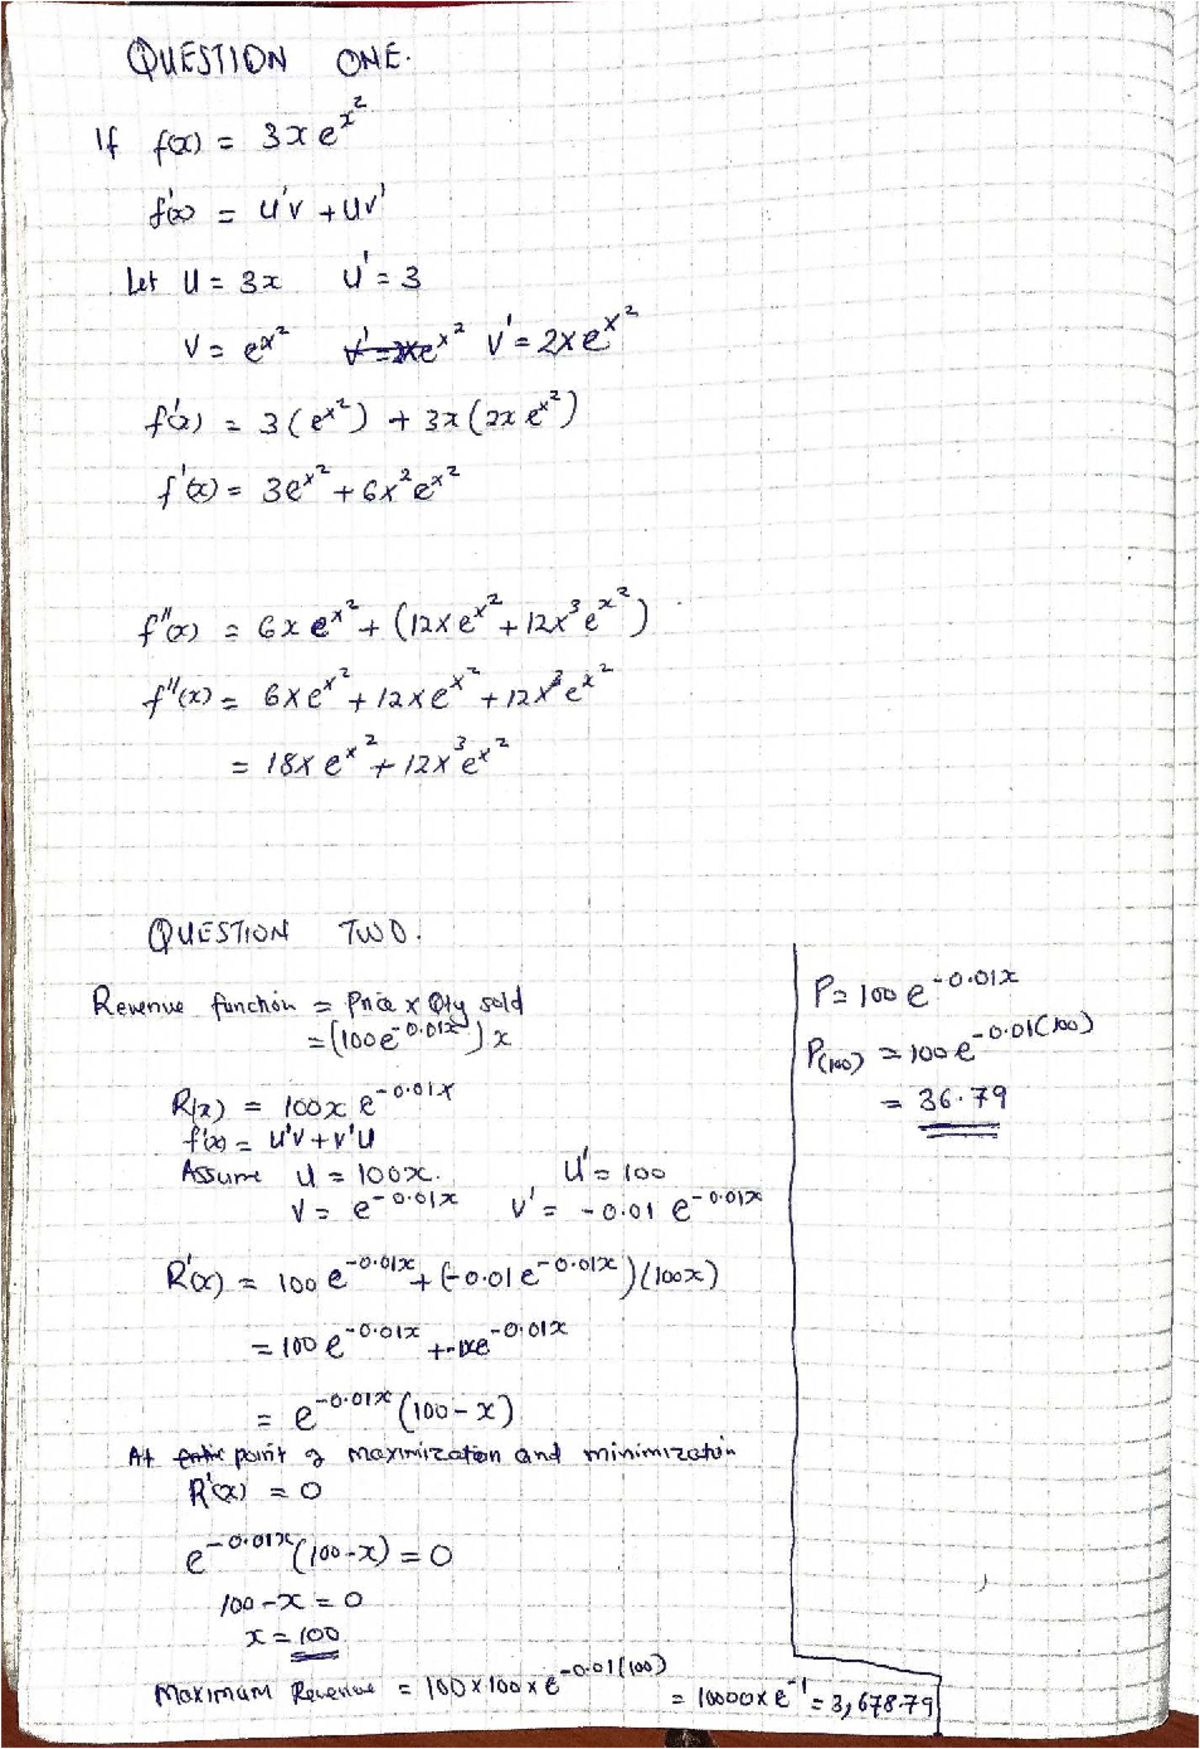 QUESTION ONE.
If f(x) = 3xe^{x^2}
f'(x) = u'v + uv'
Let u = 3x u' = 3
v = e^{x^2} v' = 2xe^{x^2}
f'(x) = 3(e^{x^2}) + 3x(2xe^{x^2})
f'(x) = 3e^{x^2} + 6x^2e^{x^2}
f''(x) = 6xe^{x^2} + (12xe^{x^2} + 12x^3e^{x^2})
f''(x) = 6xe^{x^2} + 12xe^{x^2} + 12x^3e^{x^2}
= 18xe^{x^2} + 12x^3e^{x^2}
QUESTION TWO.
Revenue function = Price x Qty sold
= (100e^{-0.01x})x
R(x) = 100xe^{-0.01x}
f'(x) = u'v + v'u
Assume u = 100x. u' = 100
v = e^{-0.01x} v' = -0.01e^{-0.01x}
R'(x) = 100e^{-0.01x} + (-0.01e^{-0.01x})(100x)
= 100e^{-0.01x} + -1xe^{-0.01x}
= e^{-0.01x}(100-x)
At point of maximization and minimization
R'(x) = 0
e^{-0.01x}(100-x) = 0
100-x = 0
x = 100
Maximum Revenue = 100 x 100 x e^{-0.01(100)} = 10000 x e^{-1} = 3,678.79
P = 100e^{-0.01x}
P(100) = 100e^{-0.01(100)}
= 36.79